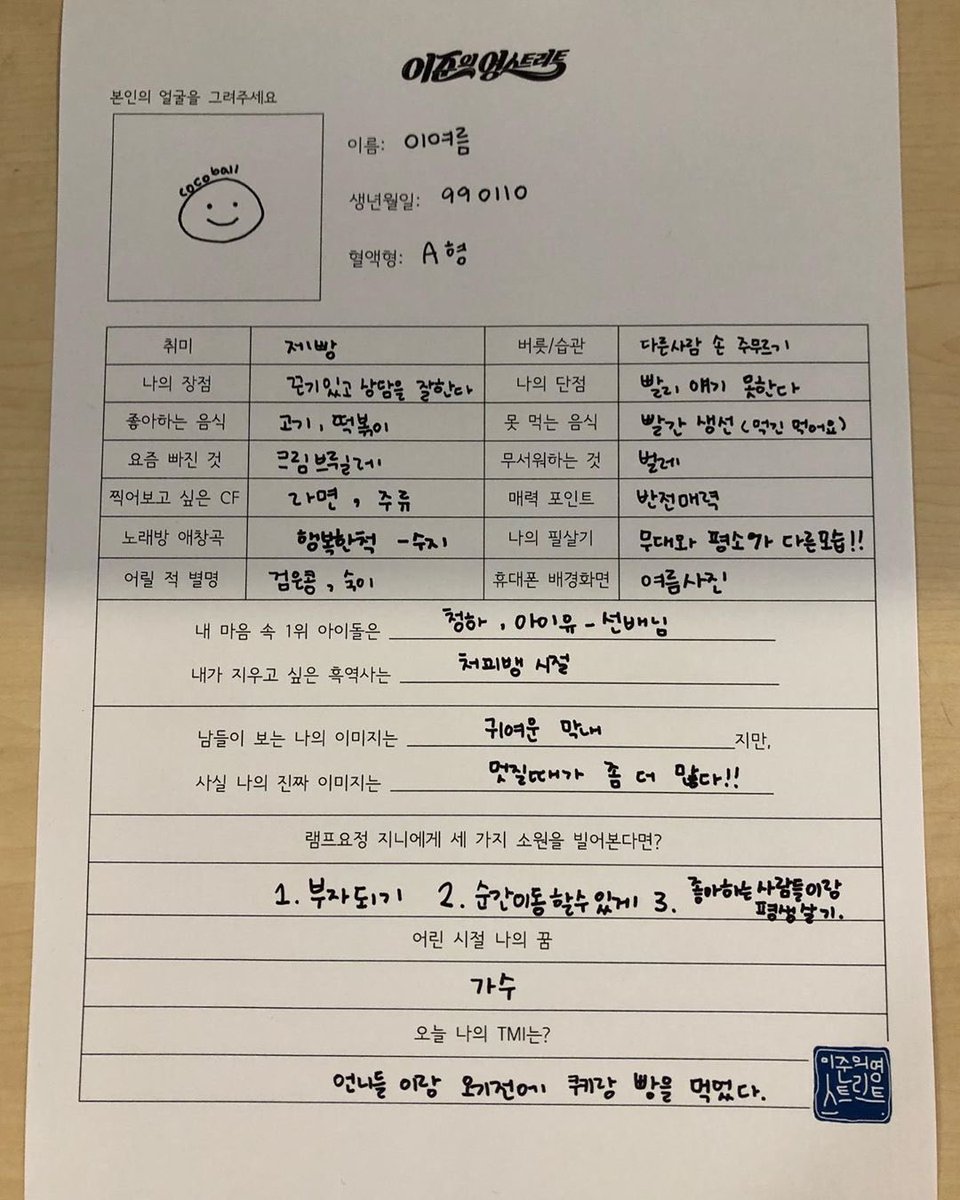 이준의 영스트리트
본인의 얼굴을 그려주세요
cocoball
이름: 이여름
생년월일: 990110
혈액형: A형
취미 제빵 버릇/습관 다른사람 손 주무르기
나의 장점 끈기있고 상담을 잘한다 나의 단점 빨리 얘기 못한다
좋아하는 음식 고기, 떡볶이 못 먹는 음식 빨간 생선 (먹긴 먹어요)
요즘 빠진 것 크림브루릴레 무서워하는 것 벌레
찍어보고 싶은 CF 라면, 주류 매력 포인트 반전매력
노래방 애창곡 행복한척 - 수지 나의 필살기 무대와 평소가 다른모습!!
어릴 적 별명 검은콩, 숙이 휴대폰 배경화면 여름사진
내 마음 속 1위 아이돌은 청하, 아이유 - 선배님
내가 지우고 싶은 흑역사는 처피뱅 시절
남들이 보는 나의 이미지는 귀여운 막내 지만,
사실 나의 진짜 이미지는 멋질때가 좀 더 많다!!
램프요정 지니에게 세 가지 소원을 빌어본다면?
1. 부자되기 2. 순간이동할수있게 3. 좋아하는 사람들이랑
평생살기.
어린 시절 나의 꿈
가수
오늘 나의 TMI는?
언니들 이랑 오기전에 쿠키랑 빵을 먹었다.
이준의영
스트리트